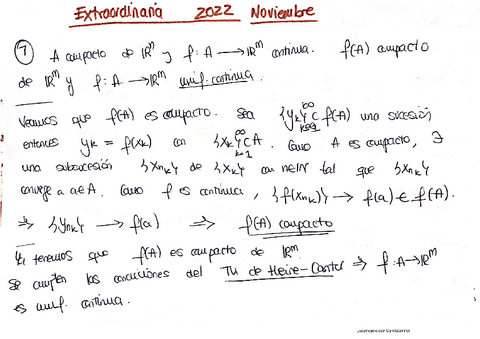 Extraordinaria 2022 Noviembre
① A compacto de ℝⁿ y f: A → ℝᵐ continua. f(A) compacto
de ℝᵐ y f: A → ℝᵐ unif. continua.
Veamos que f(A) es compacto. Sea {yₖ}ₖ₌₁^∞ ⊂ f(A) una sucesión
entonces yₖ = f(xₖ) con {xₖ}ₖ₌₁^∞ ⊂ A. Como A es compacto, ∃
una subsucesión {xₙₖ} de {xₖ} con n∈ℕ tal que {xₙₖ}
converge a a∈A. Como f es continua, {f(xₙₖ)} → f(a) ∈ f(A).
⇒ {yₙₖ} → f(a) ⇒ f(A) compacto
tenemos que f(A) es compacto de ℝᵐ.
Se cumplen las condiciones del TH de Heine-Cantor ⇒ f: A→ℝᵐ
es unif. continua.